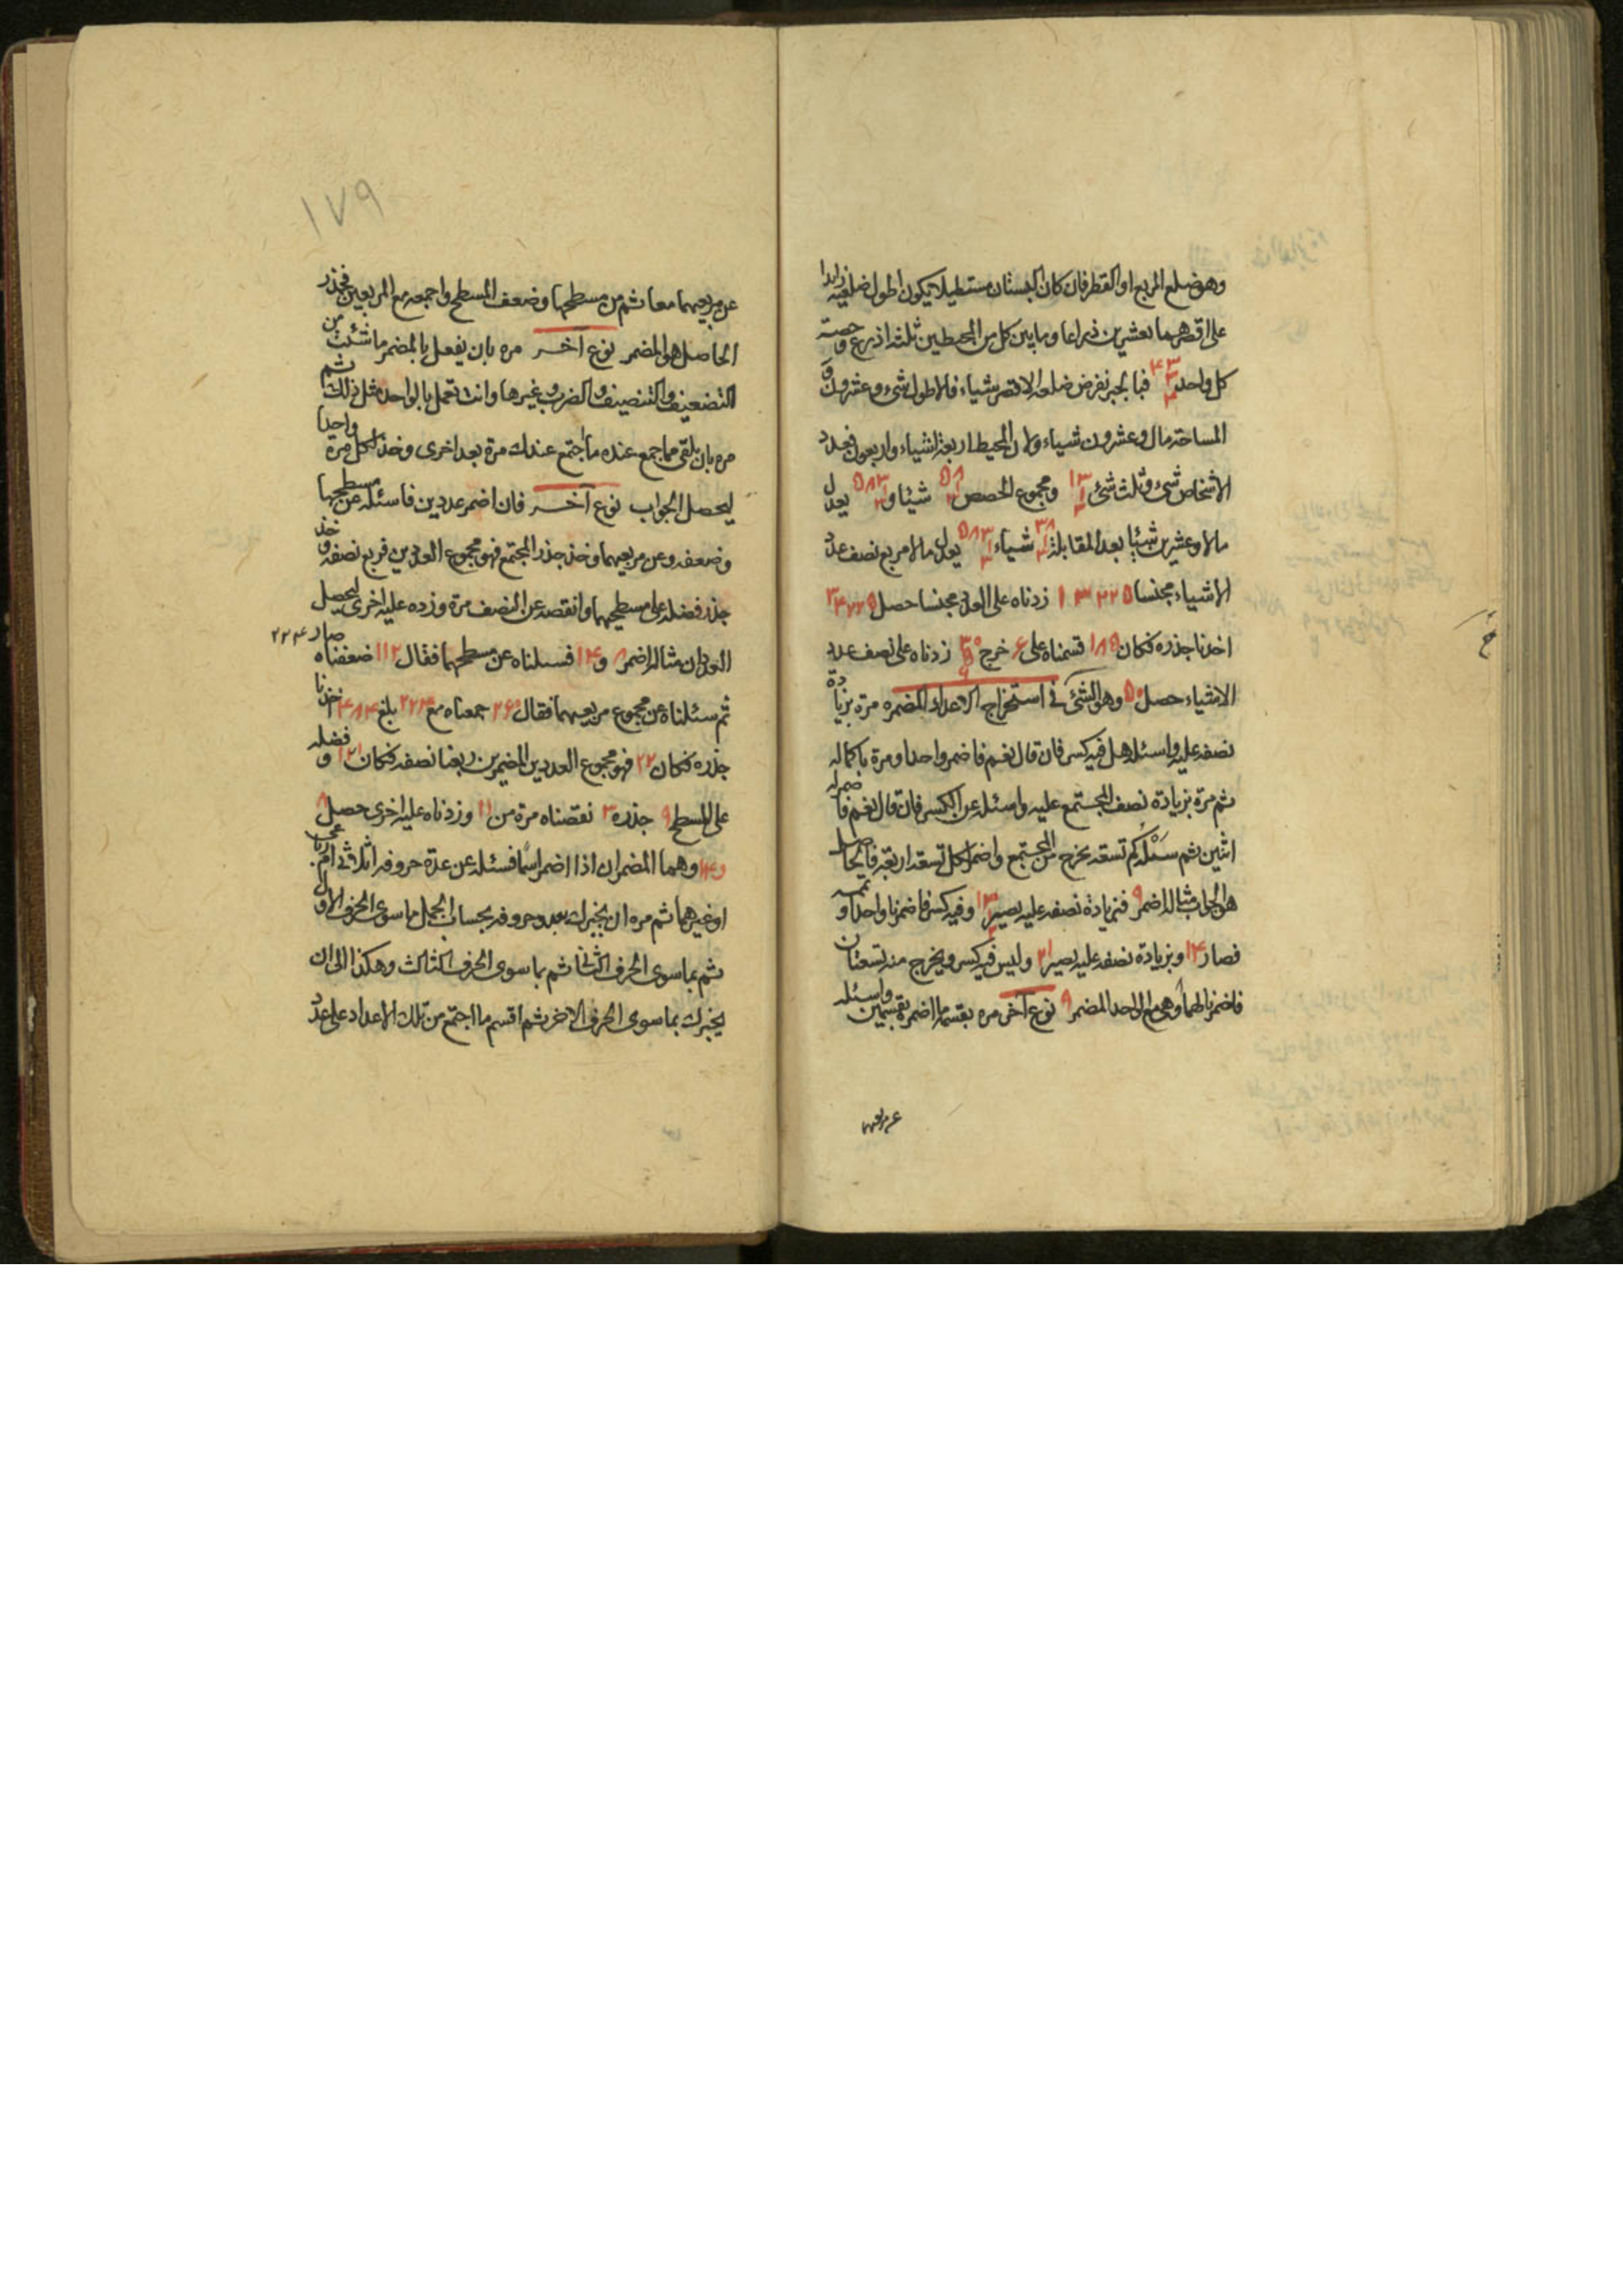 وهو ضلع المربع او القطر فان كان البستان مستطيلا يكون اطول ضلعيه زايدا
على اقصرهما بعشرين ذراعا وما بين كل من المحيطين ثلثة اذرع و حصة
كل واحد ٣ ٤٣ فبالجبر نفرض ضلعه الاقصر شياء فالاطول شئ وعشرون و
المساحة مال وعشرون شياء ولان المحيط اربعة اشياء واربعون فعدد
الاشخاص شئ وثلث شئ ١٣ ومجموع الحصص ٥٨ شيئا و ٥٨٣ يعدل
مالا وعشرين شيئا بعد المقابلة ٣٨ شياء ٥٨٣ يعدل مالا مربع نصف عدد
الاشياء مجنسا ١٣٢٢٥ زدناه على العدد مجنسا حصل ٣٤٢٢٥
اخذنا جذره فكان ١٨٥ قسمناه على ٦ خرج ٣٠ ٥ ٦ زدناه على نصف عدد
الاشياء حصل ٥٠ وهو الشئ في استخراج الاعداد المضمره مره بزيادة
نصفه عليه واسئله هل فيه كسر فان قال نعم فاضمر واحدا ومرة باكماله
ثم مرة بزيادة نصف المجتمع عليه واسئله عن الكسر فان قال نعم فاضمر له
اثنين ثم سئله كم تسعة يخرج من المجتمع واضمر لكل تسعة اربعة فالحاصل
هو الجواب مثاله اضمر ٩ فبزيادة نصفه عليه يصير ١٣ وفيه كسر فاضمرنا واحدا و تممه
فصار ١٤ وبزيادة نصفه عليه يصير ٢١ وليس فيه كسر ويخرج منه تسعتان
فاضمرنا لهما وهي مع الواحد المضمر ٩ نوع آخر مره بقسمة ما اضمره بقسمين واسئله
عن مربعيهما
خ
١٧٩
عن مربعيهما معا ثم من مسطحهما وضعف المسطح واجمعه مع المربعين فجذر
الحاصل هو المضمر نوع آخر مره بان يفعل بالمضمر ما شئت من
التضعيف والتنصيف والضرب وغيرها وانت تعمل بالواحد مثل ذلك ثم
مره بان يلقى مما جمع عنده ما اجتمع عندك مرة بعد اخرى وخذ لكل مرة واحدا
ليحصل الجواب نوع آخر فان اضمر عددين فاسئله عن مسطحهما
وضعفه وعن مربعيهما وخذ جذر المجتمع فهو مجموع العددين فربع نصفه و خذ
جذر فضله على مسطحيهما وانقصه عن النصف مرة وزده عليه اخرى ليحصل
العددان مثاله اضمر ٨ و ١٤ فسئلناه عن مسطحهما فقال ١١٢ ضعفناه صار ٢٢٤
ثم سئلناه عن مجموع مربعيهما فقال ٢٦٠ جمعناه مع ٢٢٤ بلغ ٤٨٤ اخذنا
جذره فكان ٢٢ فهو مجموع العددين المضمرين ربعنا نصفه فكان ١٢١ و فضله
على المسطح ٩ جذره ٣ نقصناه مرة من ١١ وزدناه عليه اخرى حصل ٨
و ١٤ وهما المضمران اذا اضمر اسما فسئله عن عدة حروفه اثلاثي ام رباعي
او غيرهما ثم مره ان يخبرك بعدد حروفه بحساب الجمل ما سوى الحرف الاول
ثم بما سوى الحرف الثاني ثم بما سوى الحرف الثالث وهكذا الى ان
يخبرك بما سوى الحرف الآخر ثم اقسم ما اجتمع من تلك الاعداد على عدد